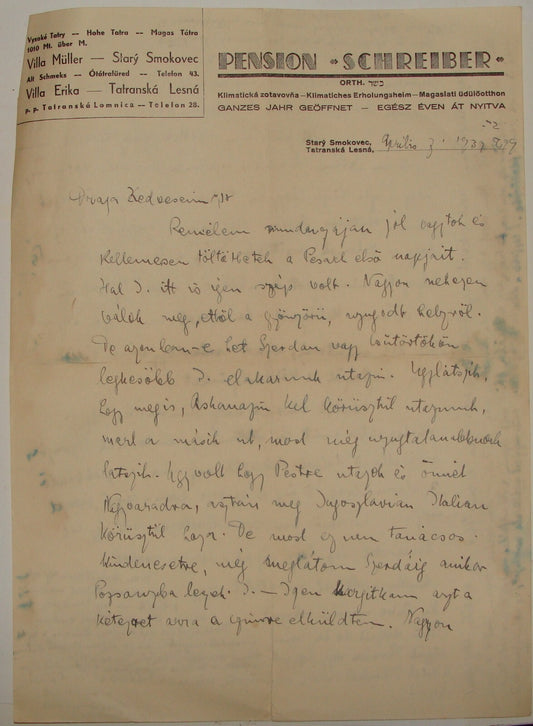 Vysoké Tatry -- Hohe Tatra -- Magas Tátra
1010 Mt. über M.
Villa Müller — Starý Smokovec
Alt Schmeks — Ótátrafüred — Telefon 43.
Villa Erika — Tatranská Lesná
p. p. Tatranská Lomnica — Telefon 28.
PENSION «SCHREIBER»
ORTH. כשר
Klimatická zotavovňa — Klimatiches Erholungsheim — Magaslati üdülőotthon
GANZES JAHR GEÖFFNET — EGÉSZ ÉVEN ÁT NYITVA
Starý Smokovec,
Tatranská Lesná, Április 3. 1939
Drága Kedveseim
Remélem mindannyian jól vagytok és
kellemesen töltöttétek a Pesach első napjait.
itt is igen szép volt. Nagyon nehezen
válok meg, ettől a gyönyörű, nyugodt helyről.
De azonban e hét Szerdán vagy Csütörtökön
legkésőbb el akarunk utazni. Úgylátszik,
hogy mégis, keresztül utazunk,
mert a másik út, most még nyugtalanabbnak
látszik. Úgy volt hogy Pestre utazok és onnét
Nagyváradra, aztán meg Jugoslavian Italian
körösztül De most ez nem tanácsos.
Mindenesetre, még meglátom Szerdáig amikor
Pozsonyba leszek. Igen azt a
arra a címre elküldtem. Nagyon